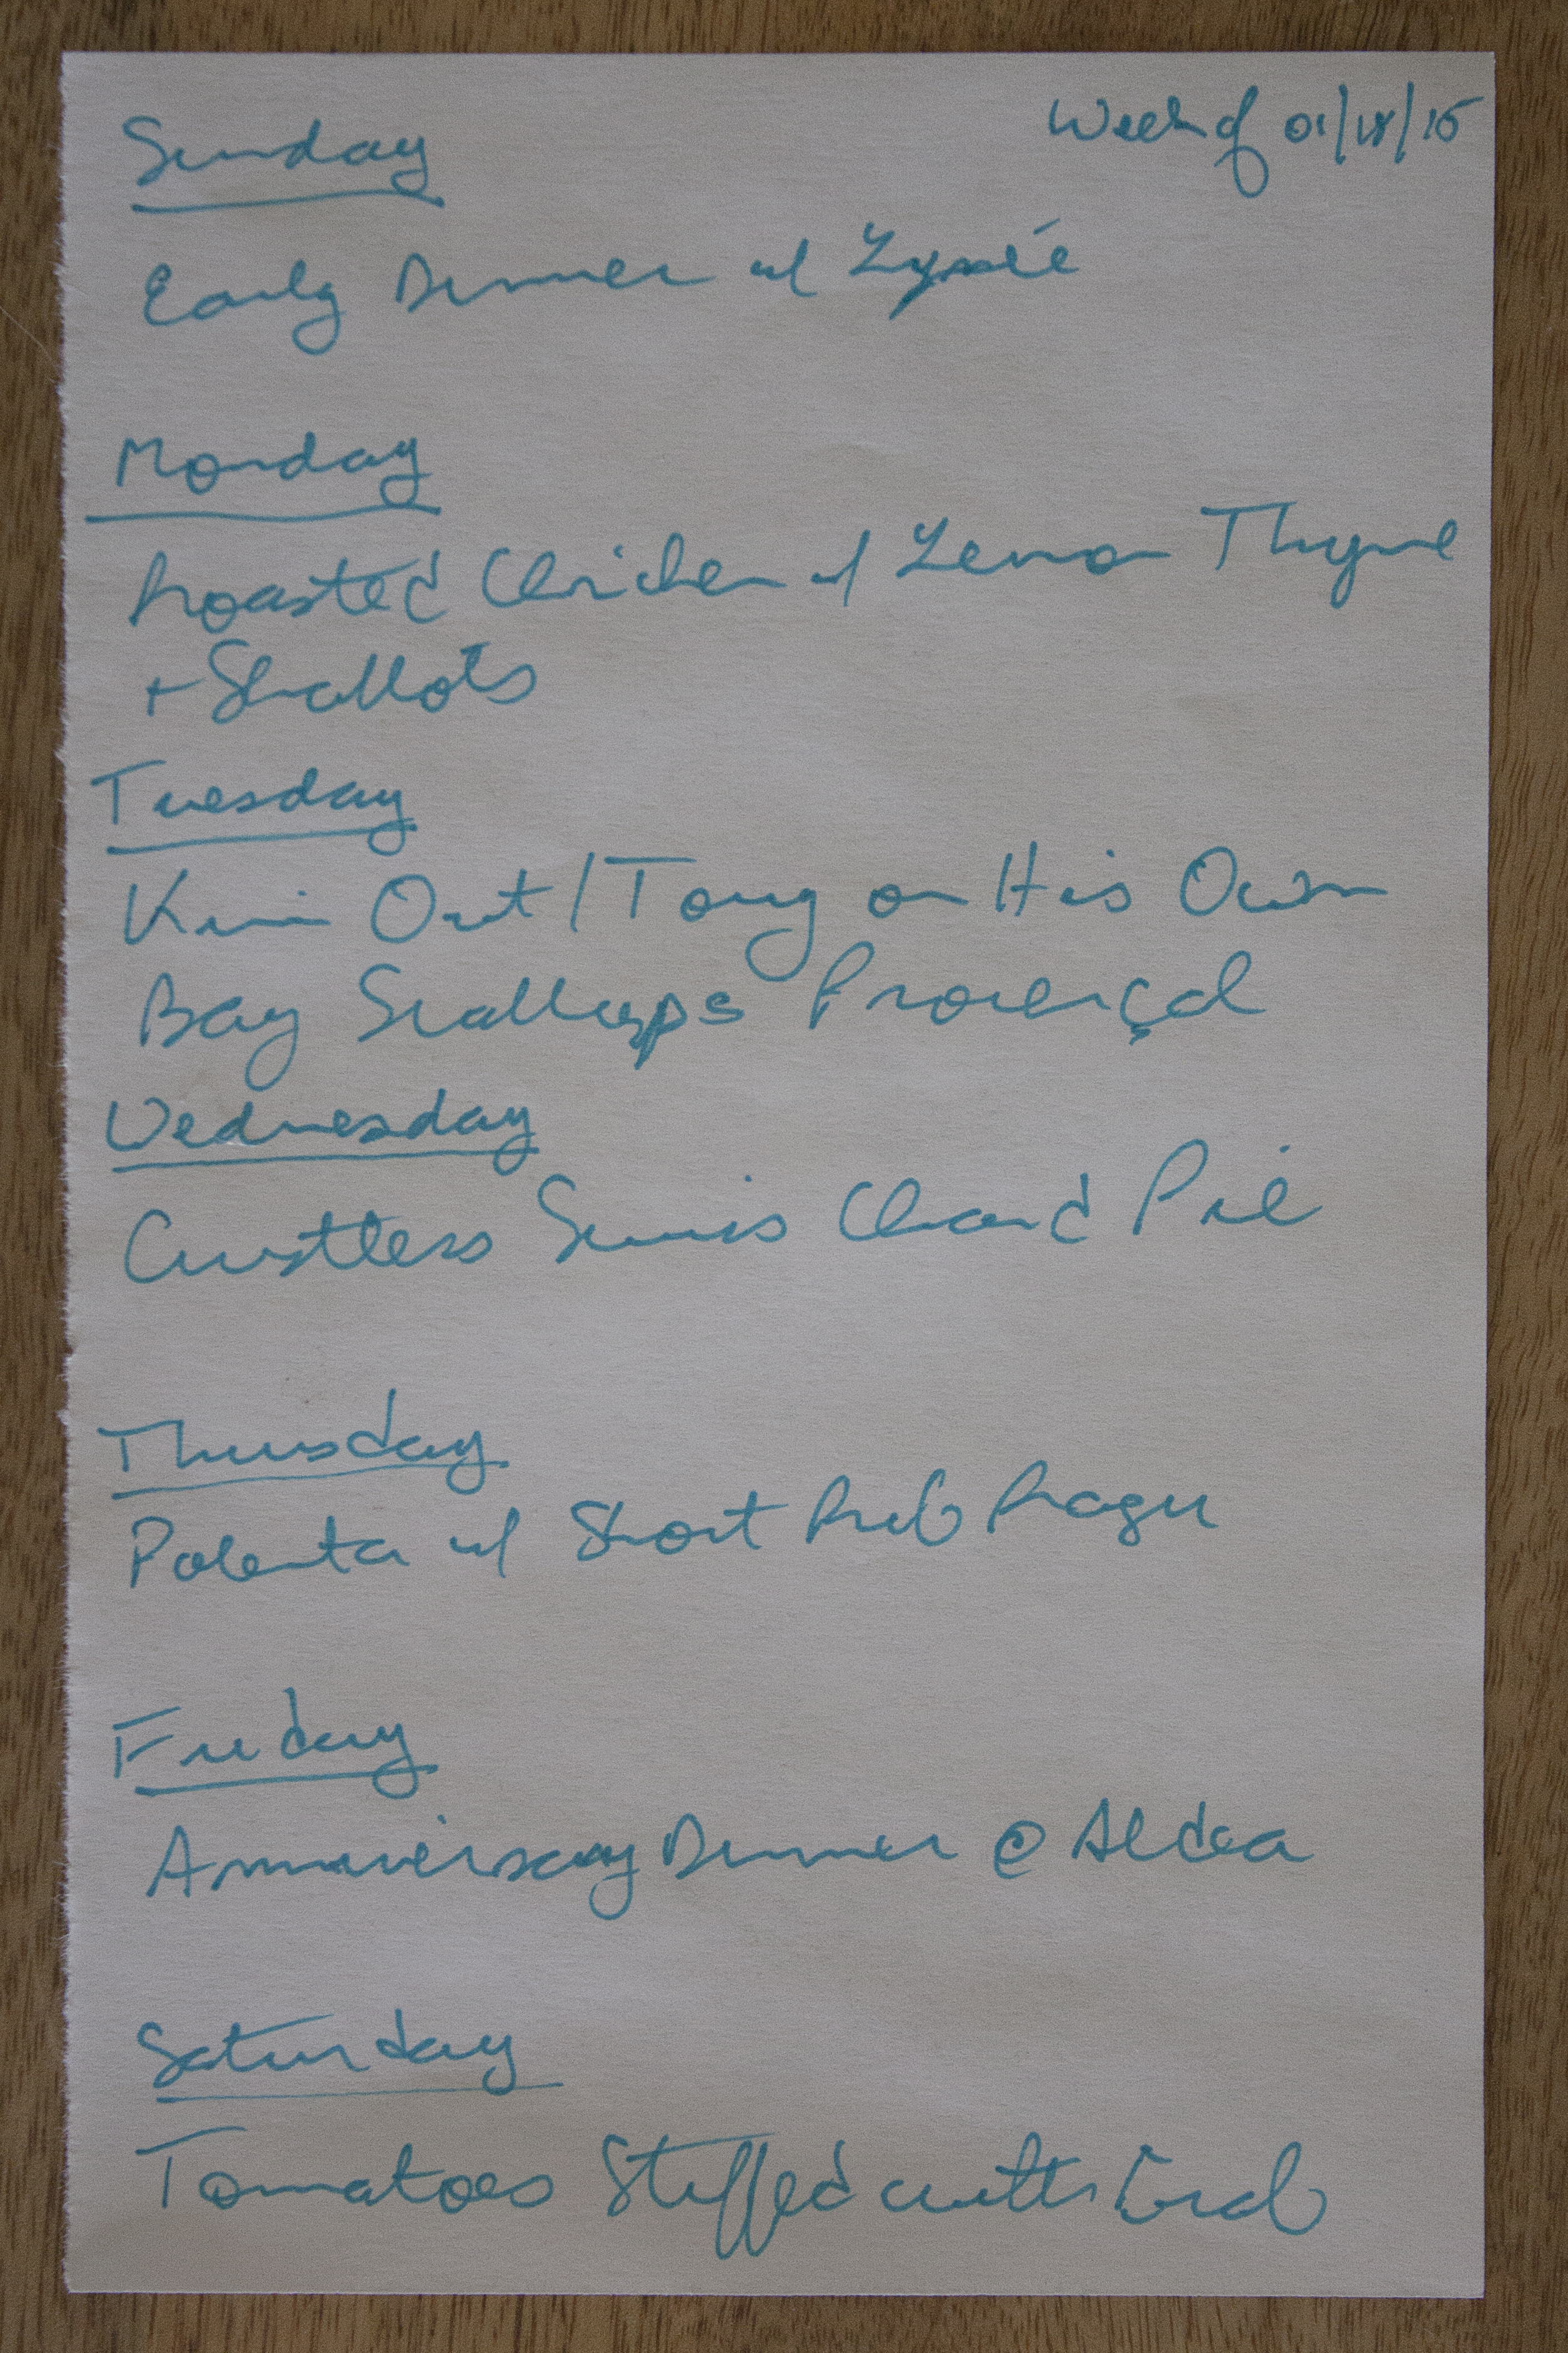 Week of 01/18/15
Sunday
Early Dinner w/ Lyxée
Monday
Roasted Chicken w/ Lemon Thyme
+ Shallots
Tuesday
Kim Out / Tony on His Own
Bay Scallops Provençal
Wednesday
Crustless Swiss Chard Pie
Thursday
Polenta w/ Short Rib Ragu
Friday
Anniversary Dinner @ Aldea
Saturday
Tomatoes Stuffed with Crab